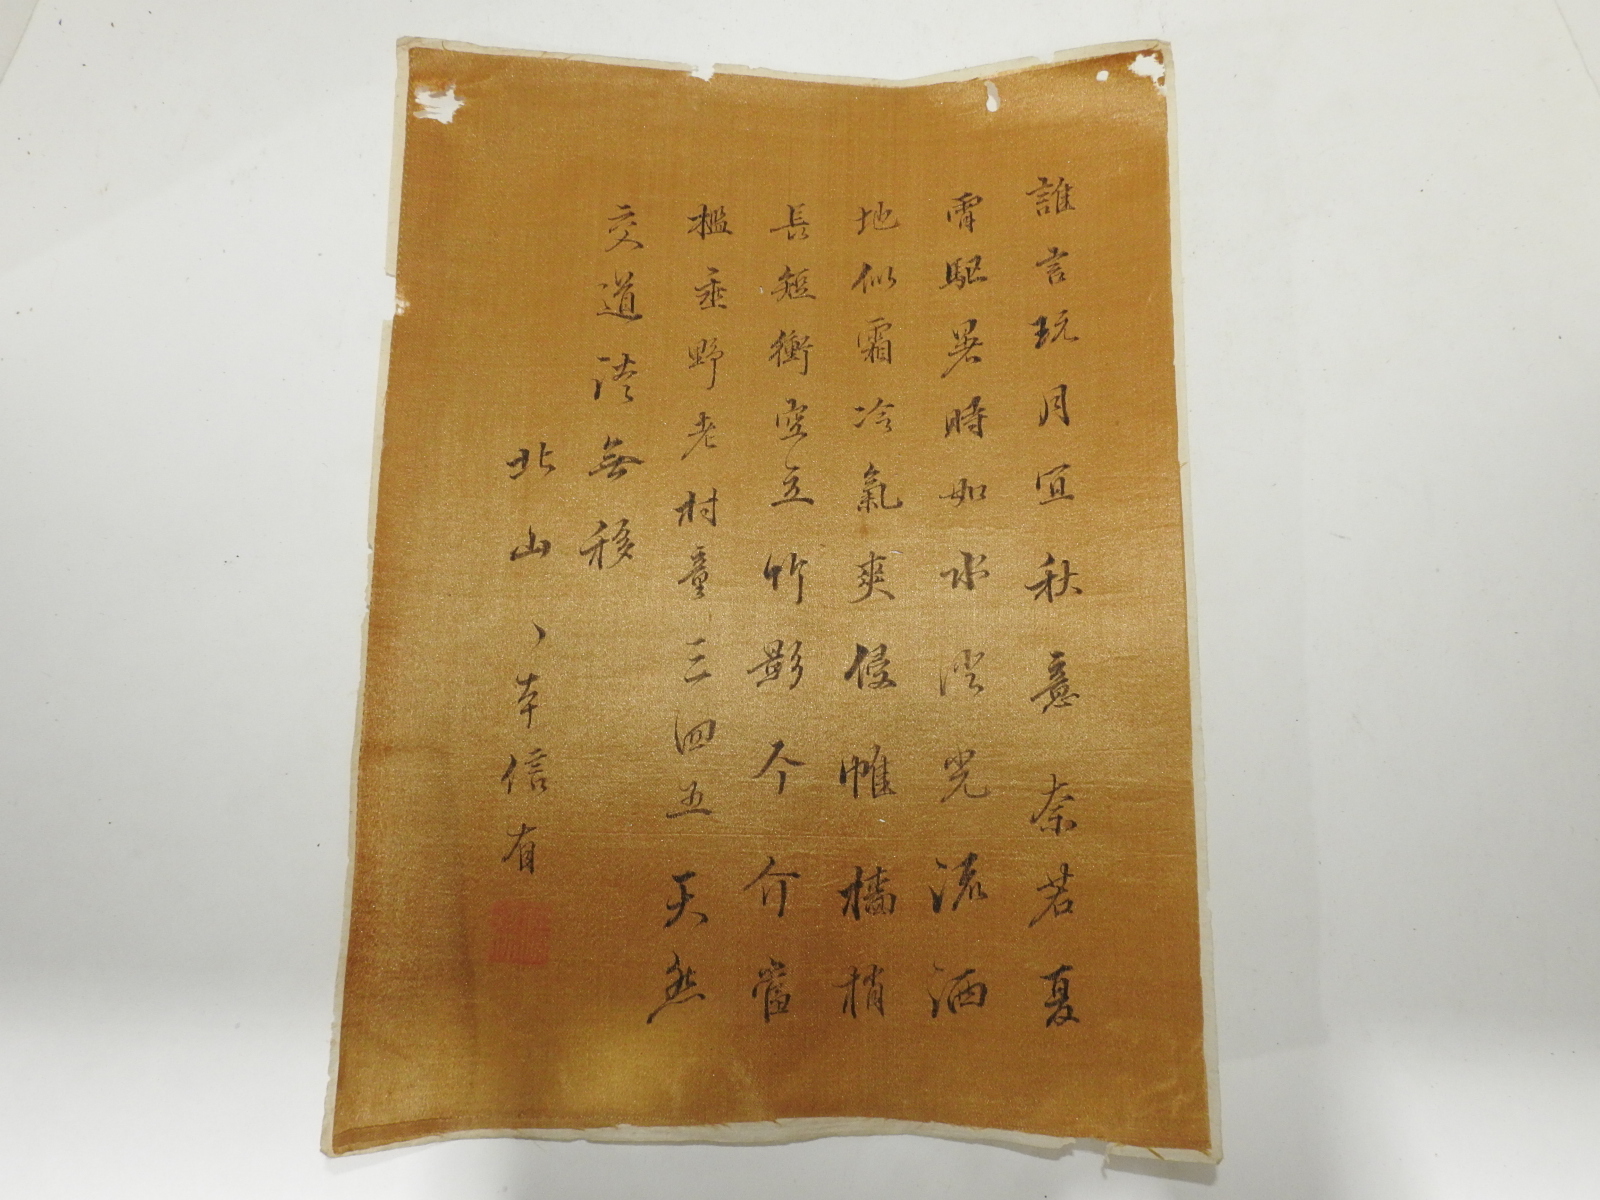 誰言玩月宜秋意奈若夏
宵駈暑時如水澄光流洒
地似霜冷氣爽侵帷檣梢
長短衝空立竹影个介當
檻垂野老村童三四五天然
交道淡無移
北山丶本信有